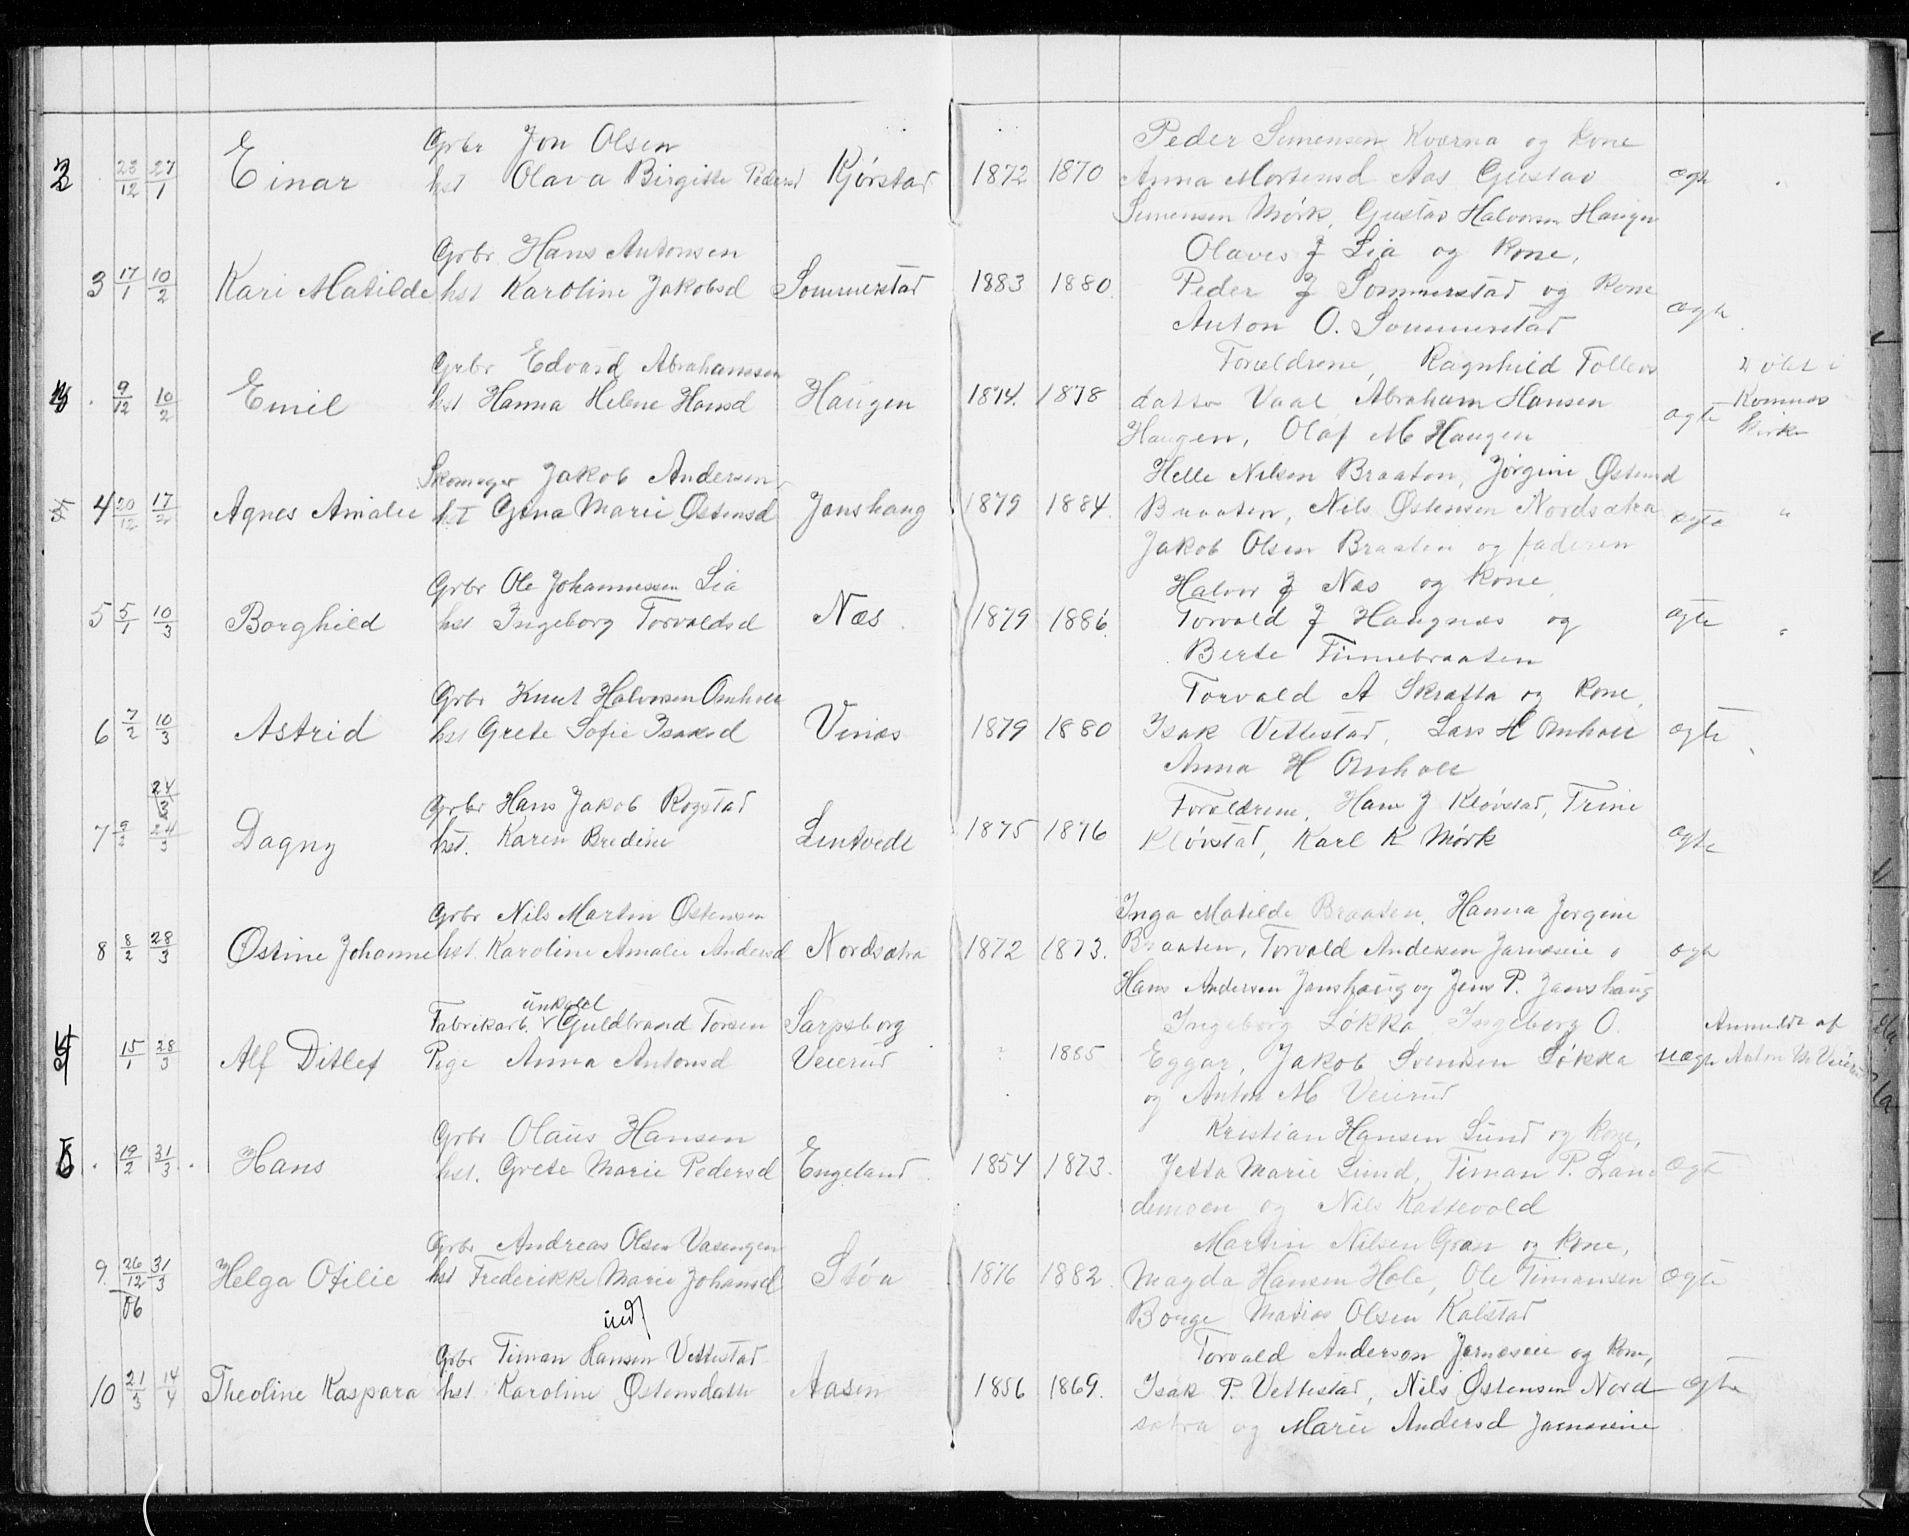 Grbr Jon Olsen
Peder Simensen Kværna og kone
2 23/12 27/1 Einar hst Olava Birgitte Pedersd Kjørstad 1872 1870 Anna Mortensd Aas Gustav ægte
Simensen Mørk, Gustav Halvorsen Haugen
Grbr Hans Antonsen
Olaves J Lia og kone,
3 17/1 10/2 Kari Matilde hst Karoline Jakobsd Sommerstad 1883 1880 Peder J Sommerstad og kone ægte
Anton O. Sommerstad
Grbr Edvard Abrahamsen
Forældrene, Ragnhild Tollevs
9/12 10/2 Emil hst Hanna Helene Hansd Haugen 1874. 1878 datter Vaal Abraham Hansen ægte Komnes
Haugen, Olaf M Haugen Kirke
Skomager Jakob Andersen
Helle Nilsen Braaten, Jørgine Østensd
4 20/12 17/2 Agnes Amalie hst Gina Marie Østensd Janshaug 1879 1884. Braaten, Nils Østensen Nordsætra ægte "
Jakob Olsen Braaten og faderen
Grbr Ole Johannessen Lia
Halvor J Næs og kone,
5 5/1 10/3 Borghild hst Ingeborg Torvaldsd Næs 1879 1886. Torvald J Haugnæs og ægte "
Berte Finnebraaten
Grbr Knut Halvorsen Omholt
Torvald A Skratta og kone,
6 7/2 10/3 Astrid hst Grete Sofie Isaksd Vinæs 1879 1880 Isak Vettestad, Lars H Omholt ægte
Anna H Omholt
24/3
Grbr Hans Jakob Rogstad
Forældrene, Hans J Kløvstad, Trine
7 9/2 24/3 Dagny hst. Karen Bredine Lintvedt 1875 1876 Kløvstad, Karl K Mørk ægte
Grbr Nils Martin Østensen
Inga Matilde Braaten, Hanna Jorgine
8 8/2 28/3 Østine Johanne hst. Karoline Amalie Andersd Nordsætra 1872 1873. Braaten, Torvald Andersen Jarnæseie ægte
Hans Andersen Janshaug og Jens P. Janshaug
unkarl
Fabrikarb. Guldbrand Torsen Sarpsborg
Ingeborg Løkka, Ingeborg O. Anmeldt af
15/1 28/3 Alf Ditlef Pige Anna Antonsd Veierud 1885 Eggar, Jakob Svensen Løkka uægte Anton M Veierud
og Anton M Veierud
Grbr Olaus Hansen
Kristian Hansen Lund og kone,
19/2 31/3 Hans hst. Grete Marie Pedersd Engeland 1854 1873. Jetta Marie Lund, Timan P. Lan ægte
demoen og Nils Kattevold
Grbr Andreas Olsen Vasengen
Martin Nilsen Gran og kone,
9. 26/12 06 31/3 Helga Otilie hst Frederikke Marie Johansd Støa 1876 1882. Magda Hansen Hole, Ole Timansen ægte
Bonge Matias Olsen Kalstad
ind
Grbr Timan Hansen Vettestad
Torvald Anderson Jarnæseie og kone,
10 21/3 14/4 Theoline Kaspara hst. Karoline Østensdatter Aasen 1856 1869. Isak P. Vettestad, Nils Østensen Nord ægte
sætra og Marie Andersd Jarnæseie